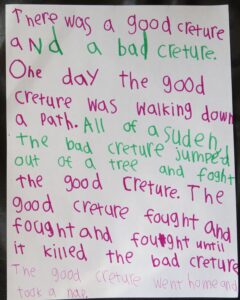 There was a good creture
aND a bad creture.
One day the good
creture was walking down
a path. All of a suden
the bad creture jumped
out of a tree and foght
the good Creture. The
good creture fought and
fought and fought until
it killed the bad creture
The good creture went home and
took a nap.